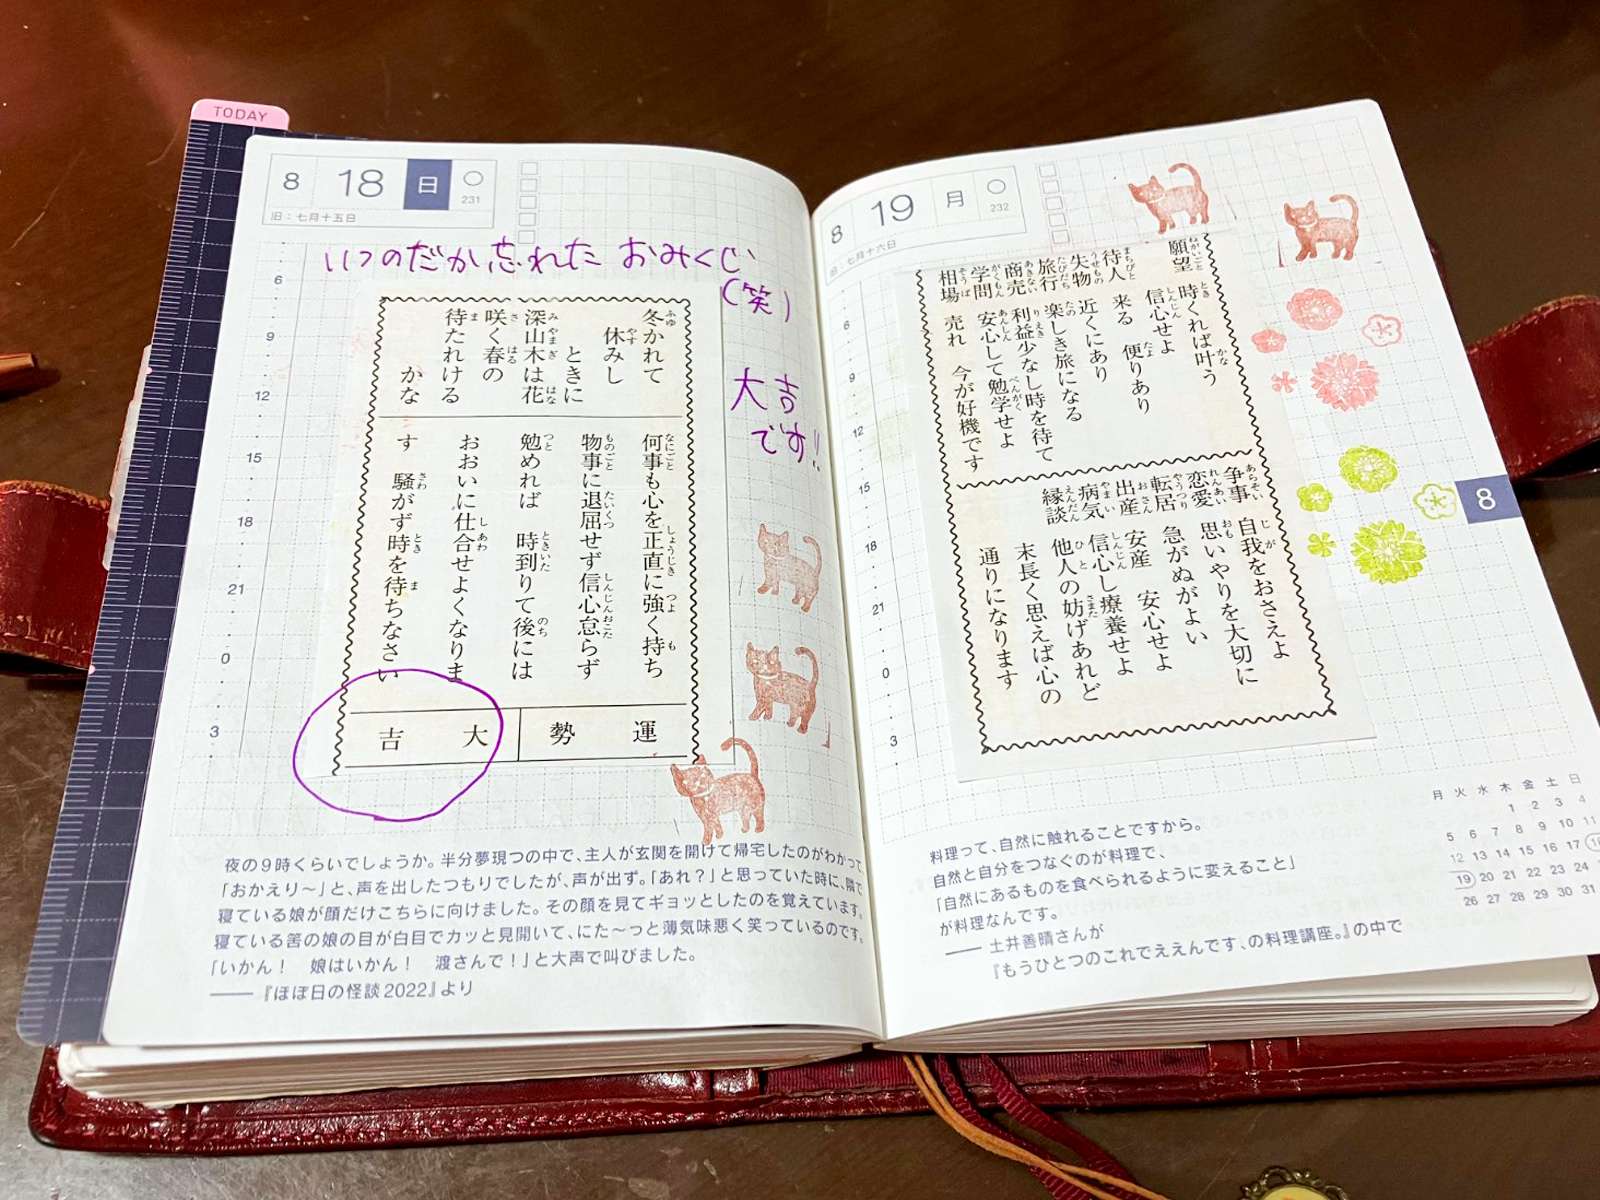 TODAY
8 18 日 231
旧：七月十五日
いつのだか忘れた おみくじ
(笑)
大吉
です!!
冬かれて
休みし
ときに
深山木は花
咲く春の
待たれける
かな
何事も心を正直に強く持ち
物事に退屈せず信心怠らず
勉めれば 時到りて後には
おおいに仕合せよくなりま
す 騒がず時を待ちなさい
運勢 大吉
6
9
12
15
18
21
0
3
夜の9時くらいでしょうか。半分夢現つの中で、主人が玄関を開けて帰宅したのがわかって、
「おかえり〜」と、声を出したつもりでしたが、声が出ず。「あれ？」と思っていた時に、隣で
寝ている娘が顔だけこちらに向けました。その顔を見てギョッとしたのを覚えています。
寝ている筈の娘の目が白目でカッと見開いて、にた〜っと薄気味悪く笑っているのです。
「いかん！ 娘はいかん！ 渡さんで！」と大声で叫びました。
——『ほぼ日の怪談2022』より
8 19 月 232
旧：七月十六日
願望 時くれば叶う
信心せよ
待人 来る 便りあり
失物 近くにあり
旅行 楽しき旅になる
商売 利益少なし時を待て
学問 安心して勉学せよ
相場 売れ 今が好機です
争事 自我をおさえよ
恋愛 思いやりを大切に
転居 急がぬがよい
出産 安産 安心せよ
病気 信心し療養せよ
縁談 他人の妨げあれど
末長く思えば心の
通りになります
6
9
12
15
18
21
0
3
8
料理って、自然に触れることですから。
自然と自分をつなぐのが料理で、
「自然にあるものを食べられるように変えること」
が料理なんです。
——土井善晴さんが
『もうひとつのこれでええんです、の料理講座。』の中で
月 火 水 木 金 土 日
1 2 3 4
5 6 7 8 9 10 11
12 13 14 15 16 17
19 20 21 22 23 24
26 27 28 29 30 31